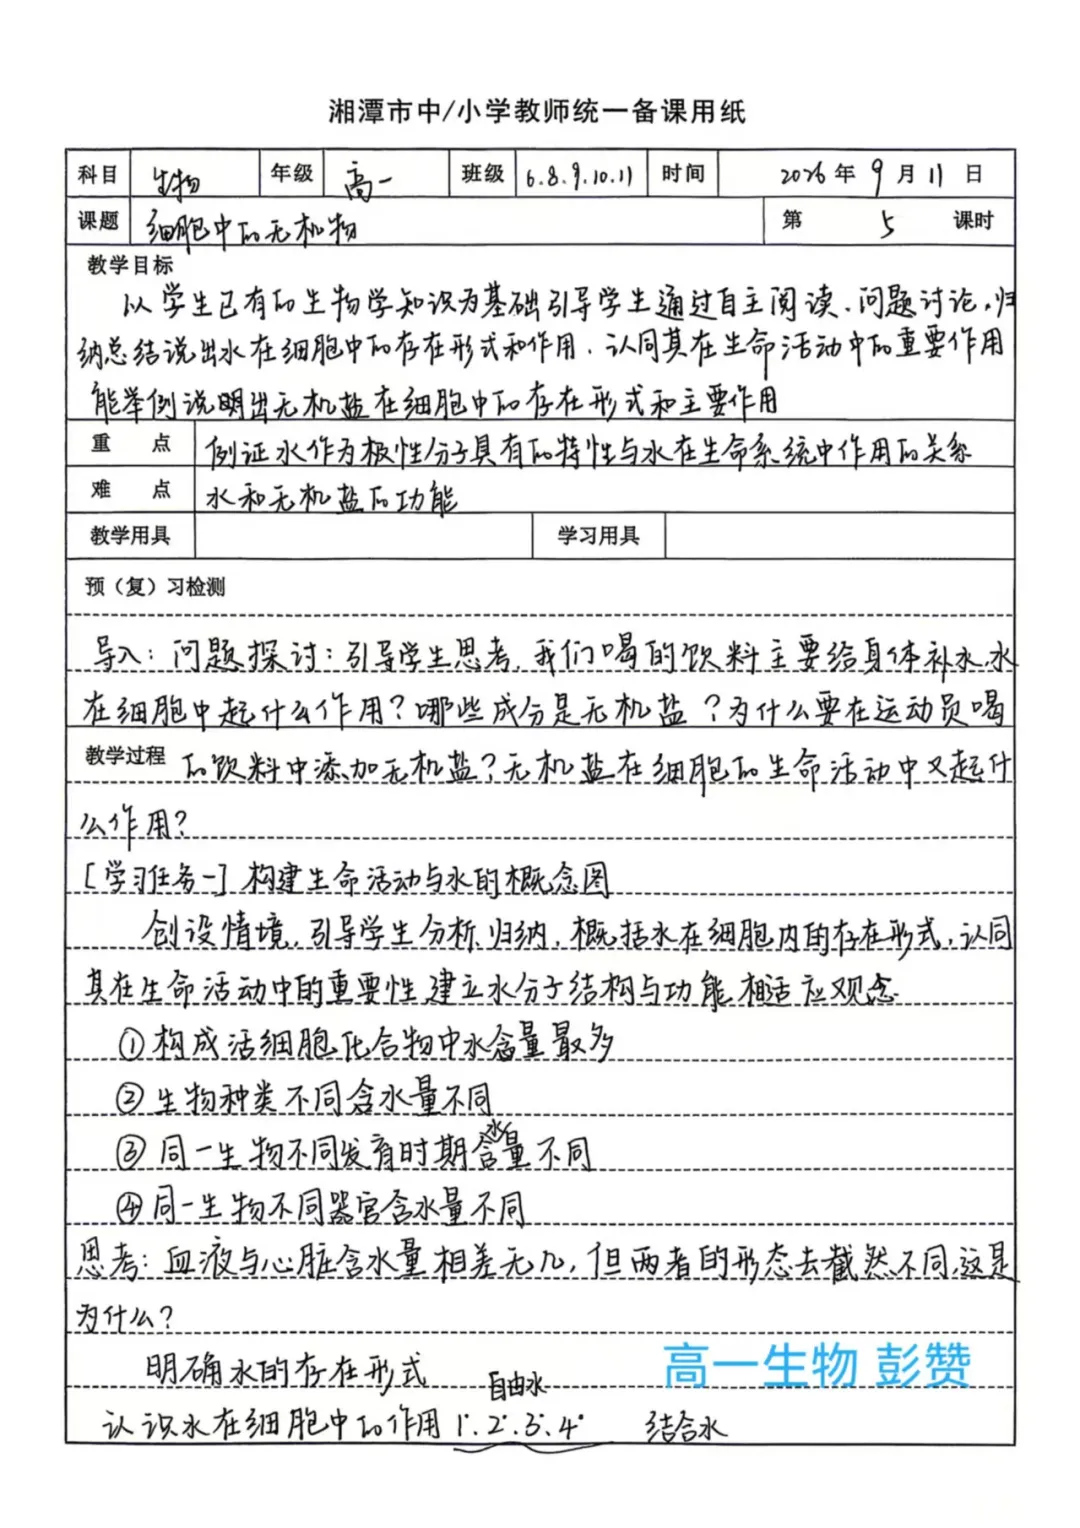 湘潭市中/小学教师统一备课用纸
科目 生物 年级 高一 班级 6.8.9.10.11 时间 2026年9月11日
课题 细胞中的无机物 第5课时
教学目标
以学生已有的生物学知识为基础引导学生通过自主阅读、问题讨论，归
纳总结说出水在细胞中的存在形式和作用，认同其在生命活动中的重要作用
能举例说明出无机盐在细胞中的存在形式和主要作用
重点 例证水作为极性分子具有的特性与水在生命系统中作用的关系
难点 水和无机盐的功能
教学用具 学习用具
预（复）习检测
导入：问题探讨：引导学生思考，我们喝的饮料主要给身体补水，水
在细胞中起什么作用？哪些成分是无机盐？为什么要在运动员喝
教学过程 的饮料中添加无机盐？无机盐在细胞的生命活动中又起什
么作用？
[学习任务一] 构建生命活动与水的概念图
创设情境，引导学生分析、归纳，概括水在细胞内的存在形式，认同
其在生命活动中的重要性，建立水分子结构与功能相适应观念
①构成活细胞化合物中水含量最多
②生物种类不同含水量不同
③同一生物不同发育时期含水量不同
④同一生物不同器官含水量不同
思考：血液与心脏含水量相差无几，但两者的形态去截然不同，这是
为什么？
明确水的存在形式
自由水
认识水在细胞中的作用 1.2.3.4. 结合水
高一生物 彭赞